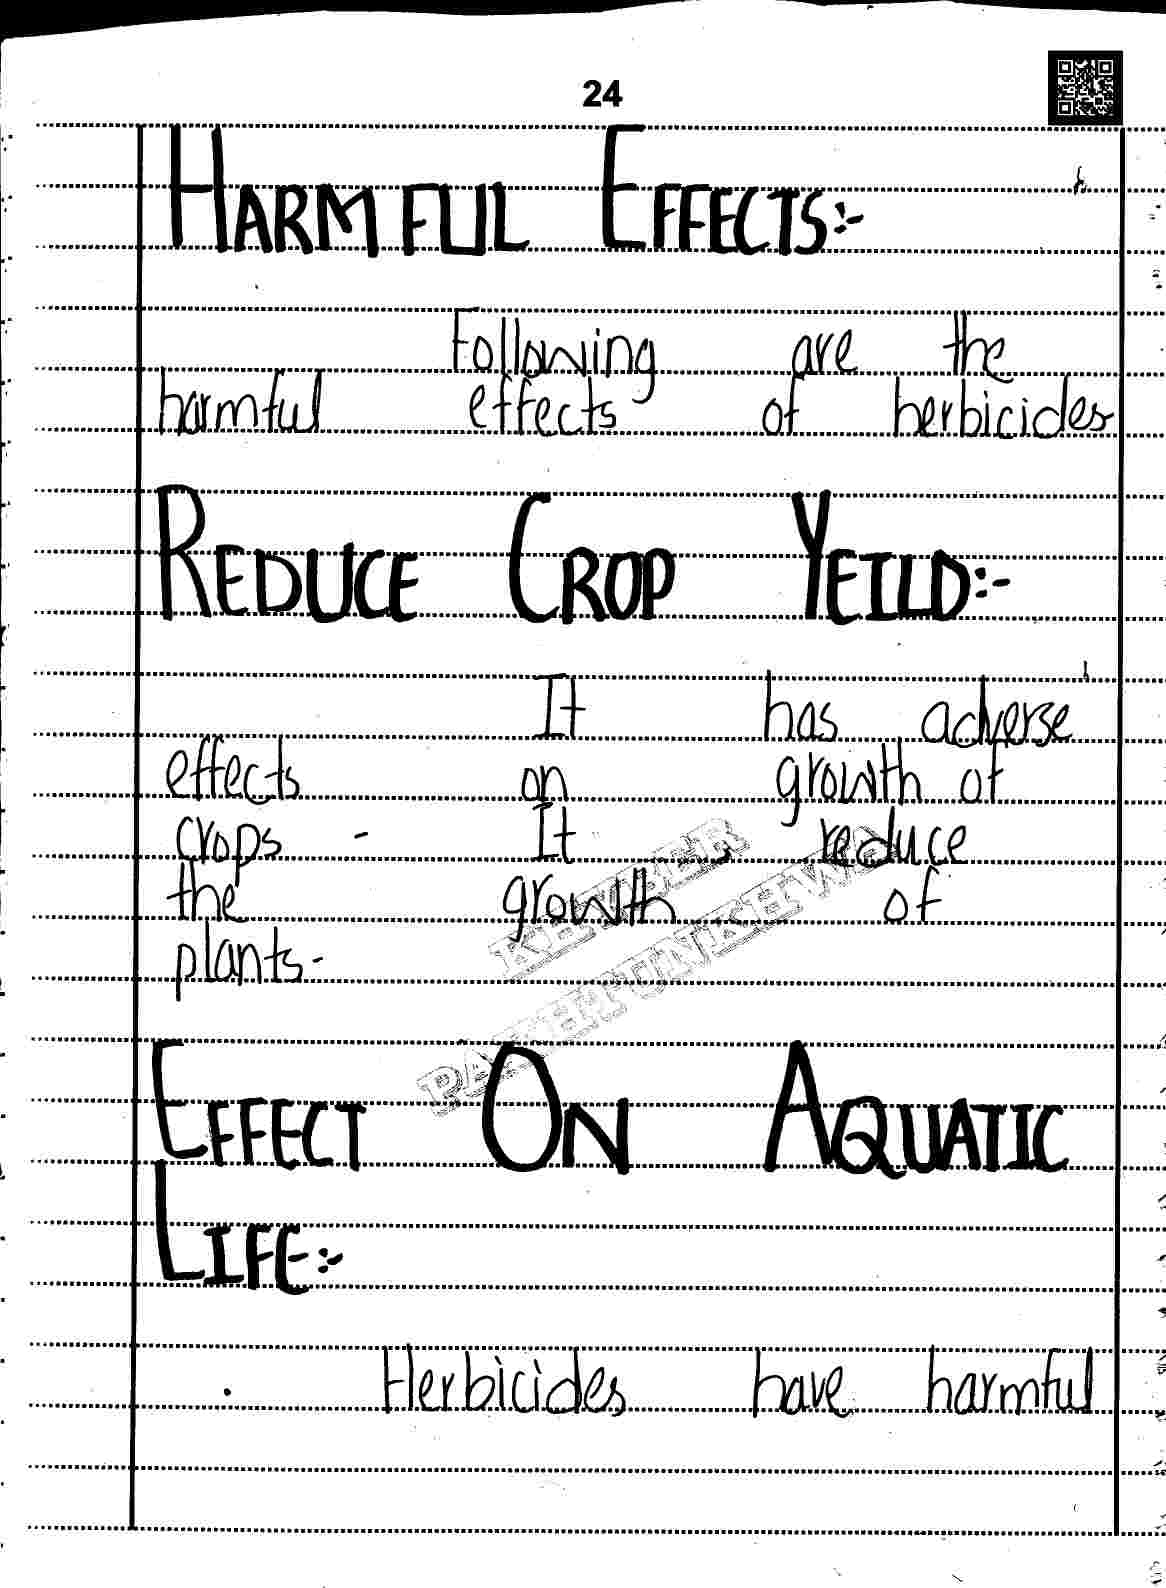 24
HARMFUL EFFECTS:-
Following are the
harmful effects of herbicides
REDUCE CROP YEILD:-
It has adverse
effects on growth of
crops - It reduce
the growth of
plants.
KHYBER
PAKHTUNKHWA
EFFECT ON AQUATIC
LIFE:-
Herbicides have harmful